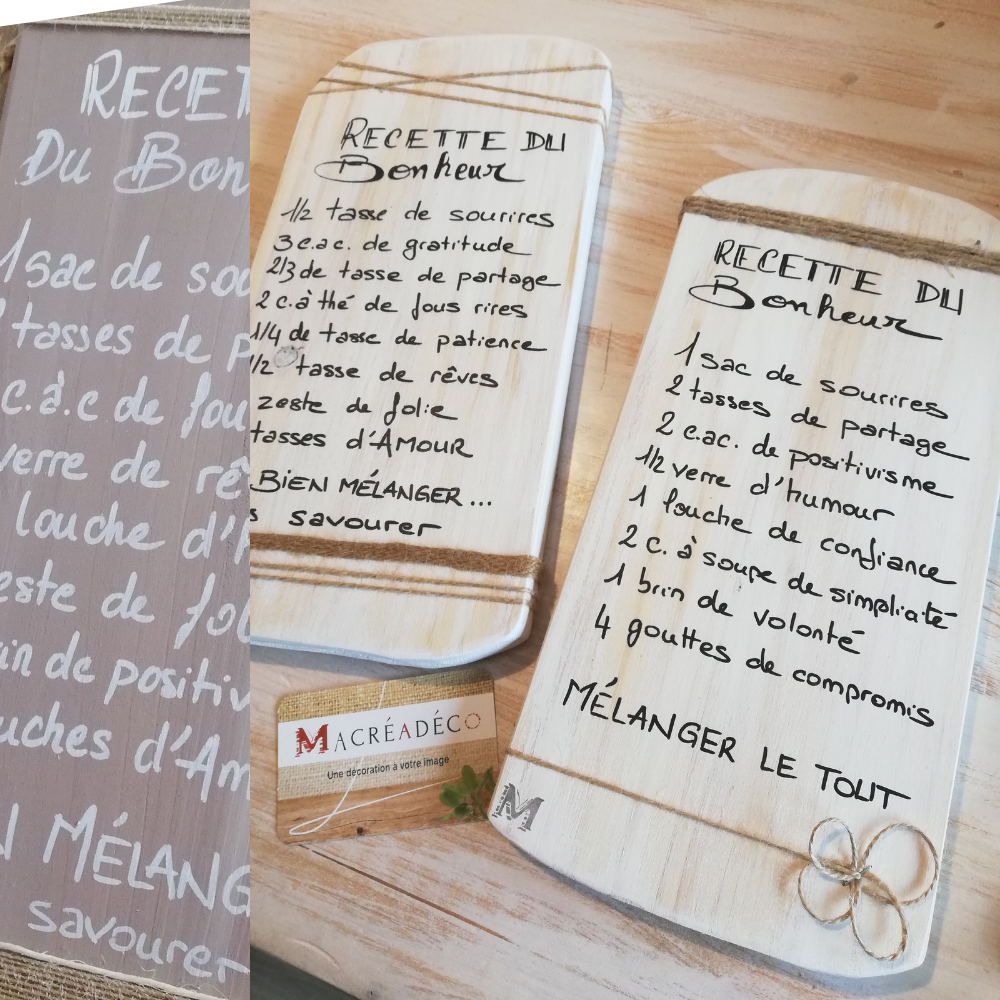 RECET
Du Bon
1 sac de sou
tasses de p
c.à.c de fou
verre de rê
louche d'h
este de fol
in de positiv
uches d'Am
N MÉLANG
savourer
RECETTE DU
Bonheur
1/2 tasse de sourires
3 c.a c. de gratitude
2/3 de tasse de partage
2 c. à thé de fous rires
1/4 de tasse de patience
1/2 tasse de rêves
zeste de folie
tasses d'AMOUR
BIEN MÉLANGER ...
s savourer
MACRÉADÉCO
Une décoration à votre image
RECETTE DU
Bonheur
1 sac de sourires
2 tasses de partage
2 c.ac. de positivisme
1/2 verre d'humour
1 louche de confiance
2 c. à soupe de simplicité
1 brin de volonté
4 gouttes de compromis
MÉLANGER LE TOUT
M